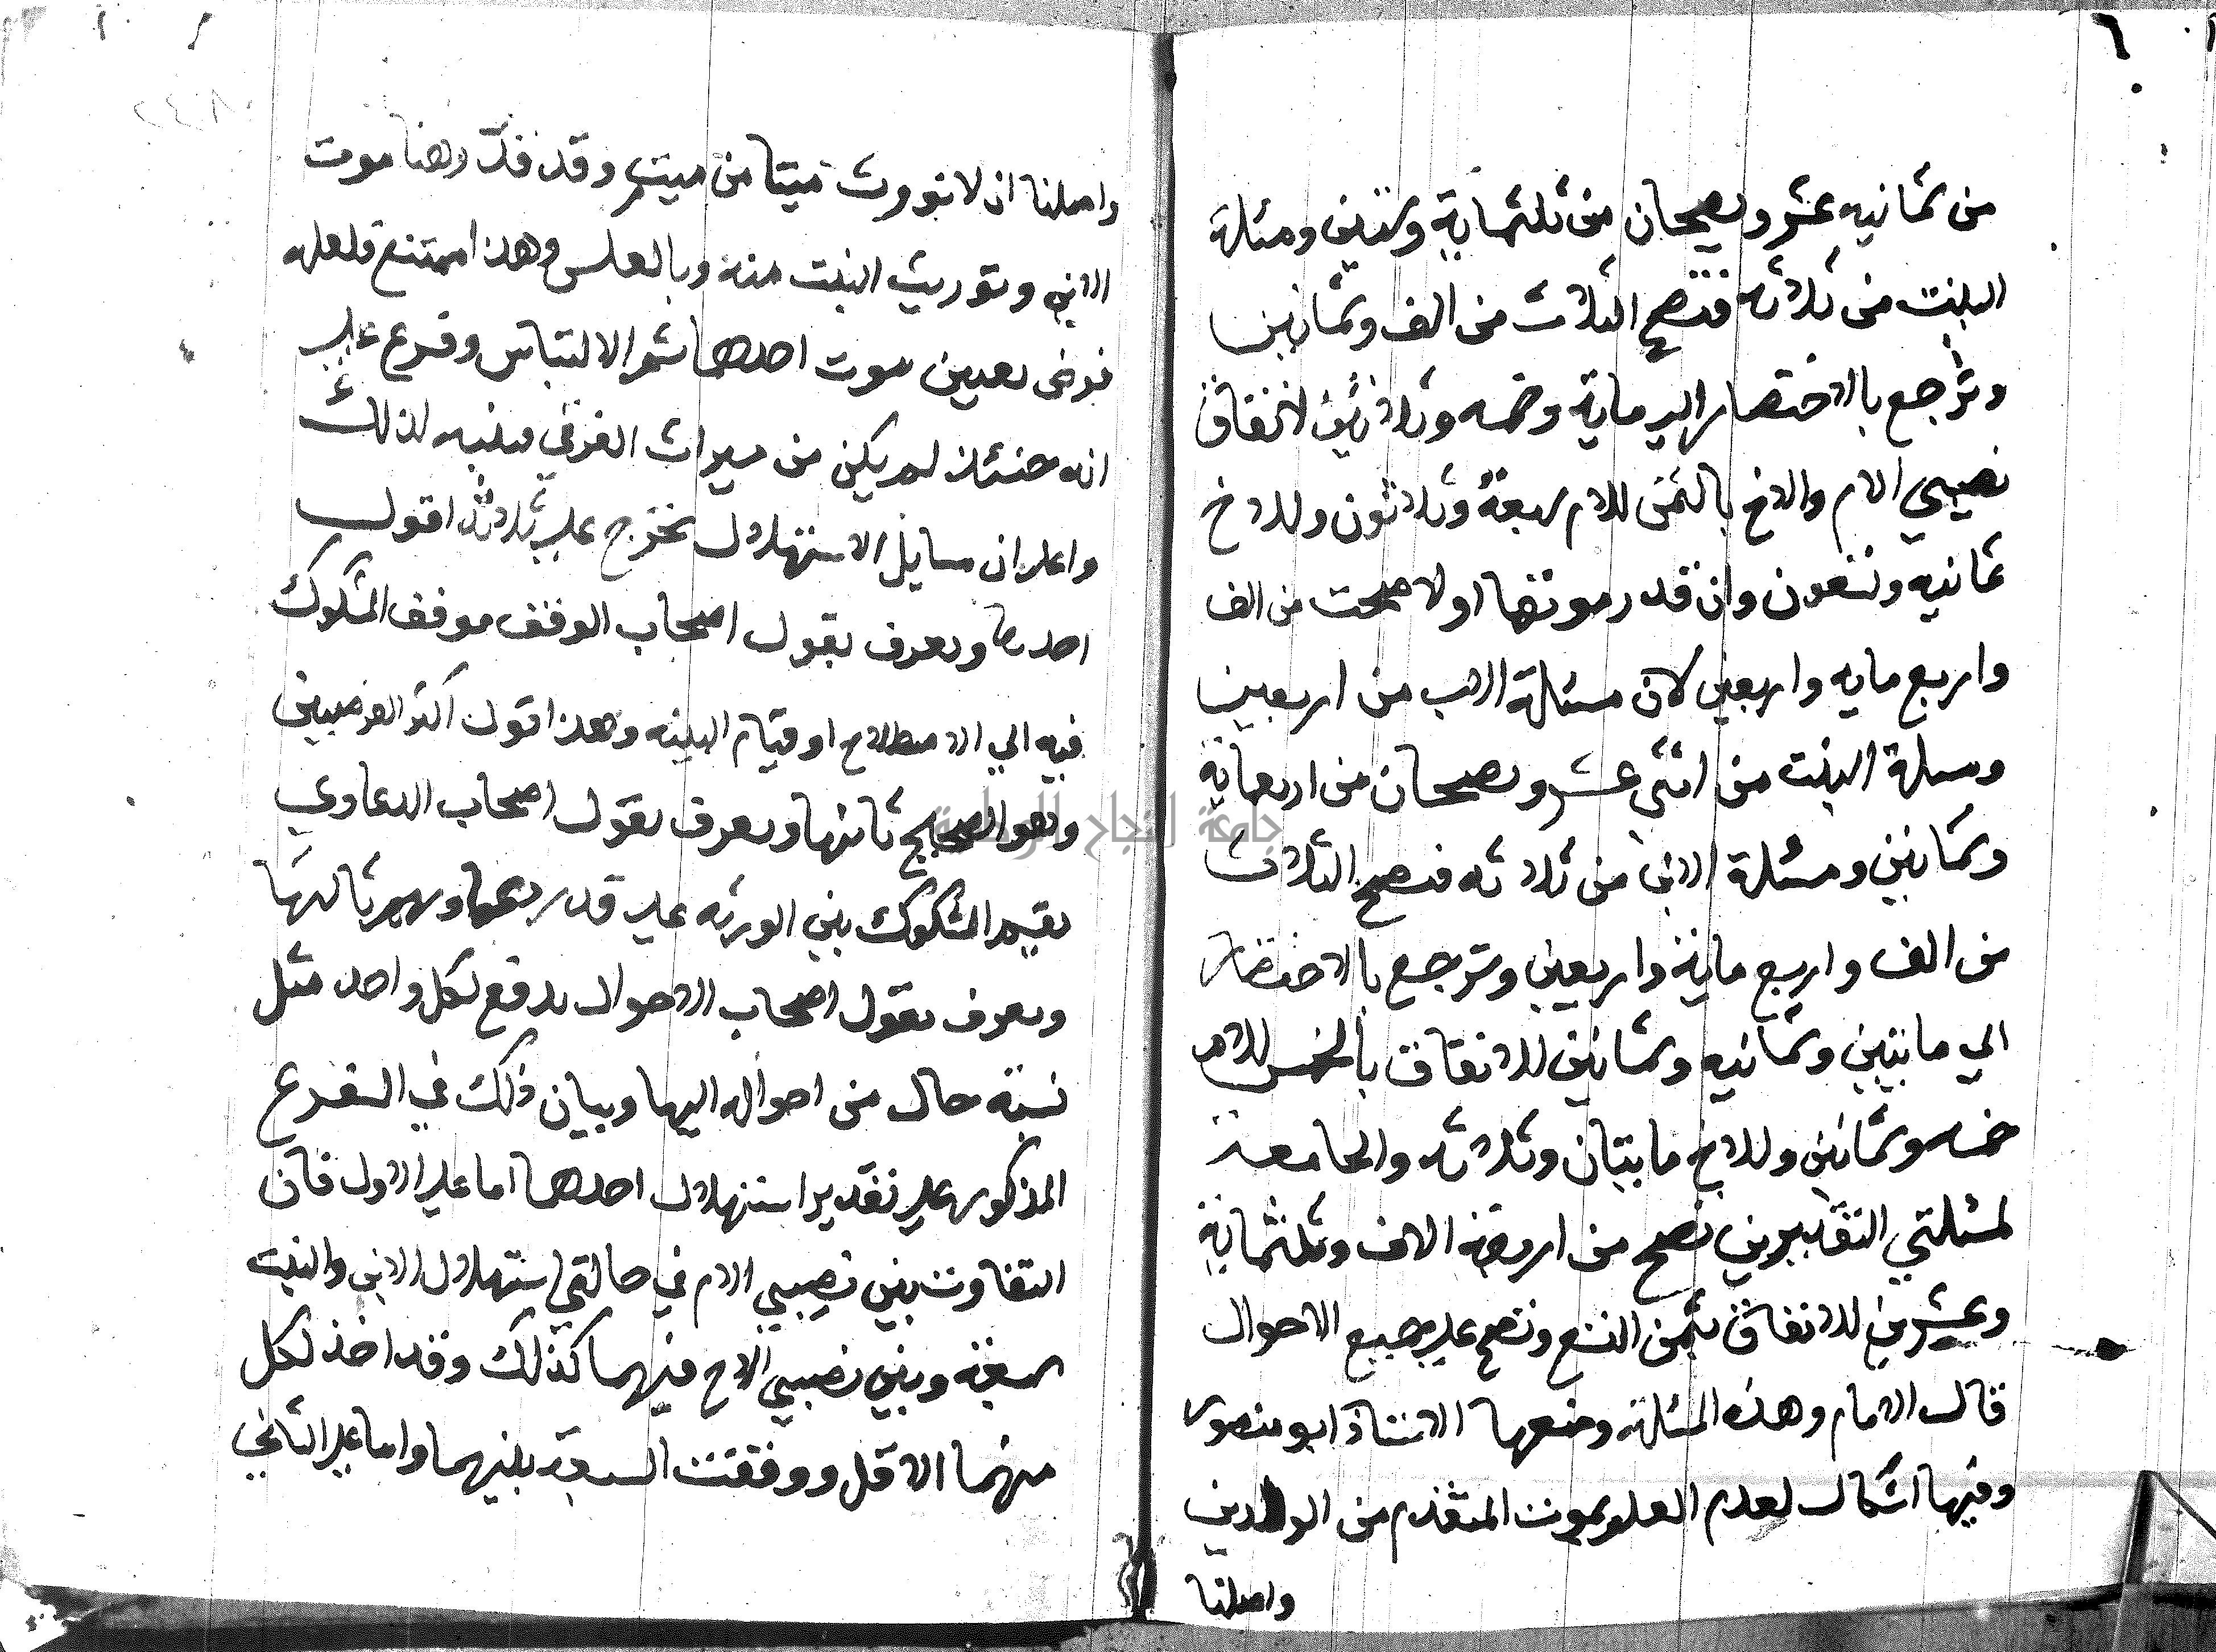 ٦
من ثمانيه عشر ويصحان من ثلثماية وستين ومسئلة
البنت من ثلاثه فتصح الثلاث من الف وثمانين
وترجع بالاختصار الي ماية وخمسه وثلاثين لاتفاق
نصيبي الام والاخ بالثمن للام سبعة وثلاثون وللاخ
ثمانيه وتسعون وان قدر موتها اولا صحت من الف
واربع مايه واربعين لان مسئلة الاب من اربعين
ومسلة البنت من اثني عشر ويصحان من اربعماية
وثمانين ومسئلة الابن من ثلاثه فتصح الثلاث
من الف واربع ماية واربعين وترجع بالاختصار
الي مايتين وثمانيه وثمانين للاتفاق بالخمس للام
خمسه وثمانين وللاخ مايتان وثلاثه والجامعة
لمسئلتي التقديرين تصح من اربعة الاف وثلثماية
وعشرين للاتفاق بثمن التسع وتصح علي جميع الاحوال
قال الامام وهذه المسئلة وضعها الاستاذ ابو منصور
وفيها اشكال لعدم العلم بموت المتقدم من الولدين
واصلنا
واصلنا ان لا نورث ميتا من ميت وقد قدر هنا موت
الابن وتوريث البنت منه وبالعكس وهذا ممتنع ولعله
فرض تعيين موت احدهما ثم الالتباس وفرع علي
انه حينئذ لم يكن من ميراث الغرقي فتنبه لذلك
واعلم ان مسايل الاستهلال تخرج علي ثلاثة اقول
احدها ويعرف بقول اصحاب الوقف موقف المشكوك
فيه الي الاصطلاح او قيام البينه وهذا قول اكثر الفرضيين
وهو الصحيح ثانيها ويعرف بقول اصحاب الدعاوي
يقسم المشكوك بين الورثه علي قدر دعاويهم ثالثها
ويعرف بقول اصحاب الاحوال يدفع لكل واحد مثل
نسبة حال من احواله اليها وبيان ذلك في الفرع
المذكور علي تقدير استهلال احدهما اما علي الاول فان
التفاوت بين نصيبي الام في حالتي استهلال الابن والبنت
سبعة وبين نصيبي الاخ فيهما كذلك وقد اخذ لكل
منهما الاقل ووقفت السبعة بينهما واما علي الثاني
جامعة النجاح الوطنية